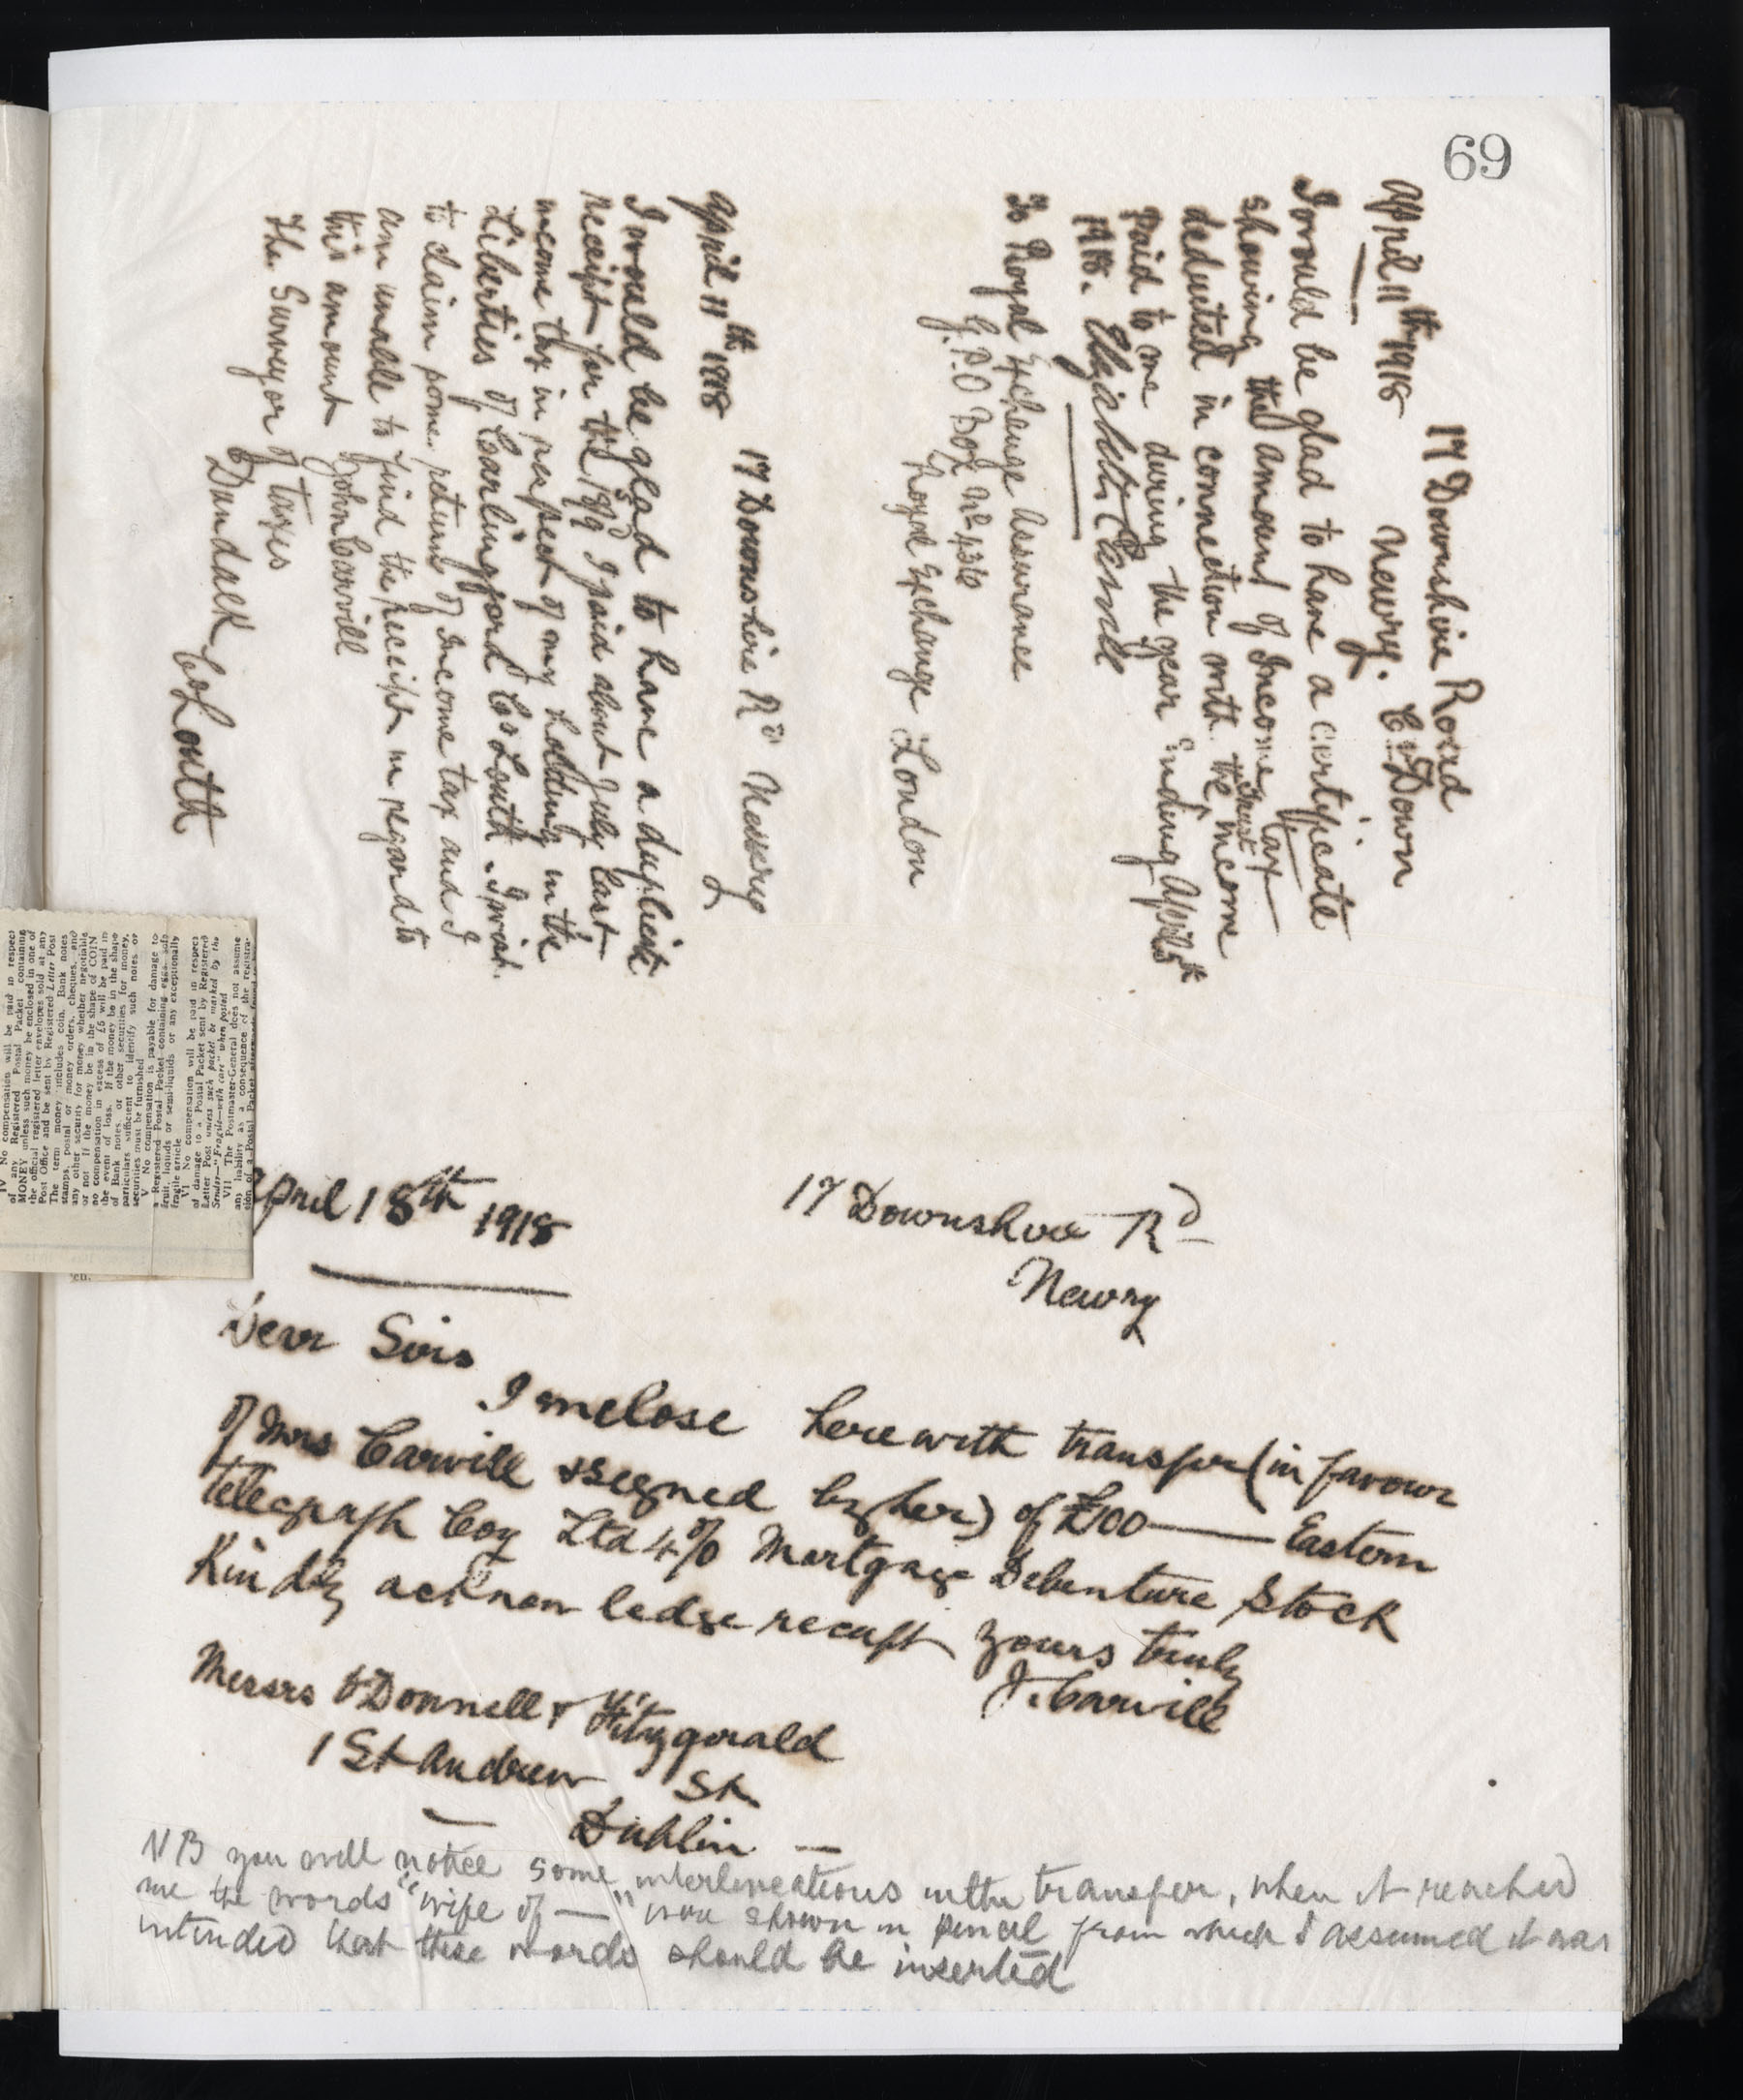 69
17 Downshire Road
April 11th 1918 Newry. Co Down
I would be glad to have a certificate
showing the amount of Income Tax
deducted in connection with the Trust income
paid to me during the year Ending April 5th
1918.
To Royal Exchange Assurance
G.P.O Box No 436
Royal Exchange London
17 Downshire Rd Newry
April 11th 1918
I would be glad to have a duplicate
receipt for the I paid about July last
income tax in respect of my holding in the
Liberties of Carlingford Co Louth. I wish
to claim some return of Income tax and I
am unable to find the receipt in regard to
this amount John Carvill
The Surveyor of taxes
Dundalk Co Louth
IV No compensation will be paid in respect
of any Registered Postal Packet containing
MONEY unless such money be enclosed in one of
the official registered letter envelopes sold at any
Post Office and be sent by Registered Letter Post
The term money includes coin, Bank notes
stamps, postal or money orders, cheques, and
any other security for money whether negotiable
or not If the money be in the shape of COIN
no compensation in excess of £5 will be paid in
the event of loss. If the money be in the shape
of Bank notes or other securities for money,
particulars sufficient to identify such notes or
securities must be furnished
V No compensation is payable for damage to
a Registered Postal Packet containing eggs, soft
fruit, liquids or semi-liquids or any exceptionally
fragile article
VI No compensation will be paid in respect
of damage to a Postal Packet sent by Registered
Letter Post unless such packet be marked by the
Sender—"Fragile—with care" when posted
VII The Postmaster-General does not assume
any liability as a consequence of the registra-
tion of a Postal Packet
April 18th 1918 17 Downshire Rd
Newry
Dear Sirs
I enclose herewith transfer (in favour
of Mrs Carvill & signed by her) of £100 — Eastern
Telegraph Coy Ltd 4% Mortgage Debenture Stock
Kindly acknowledge receipt yours truly
J. Carvill
Messrs O'Donnell & Fitzgerald
1 St Andrew St.
Dublin —
NB you will notice some interlineations in the transfer, when it reached
me the words "wife of —" were shown in pencil from which I assumed it was
intended that these words should be inserted